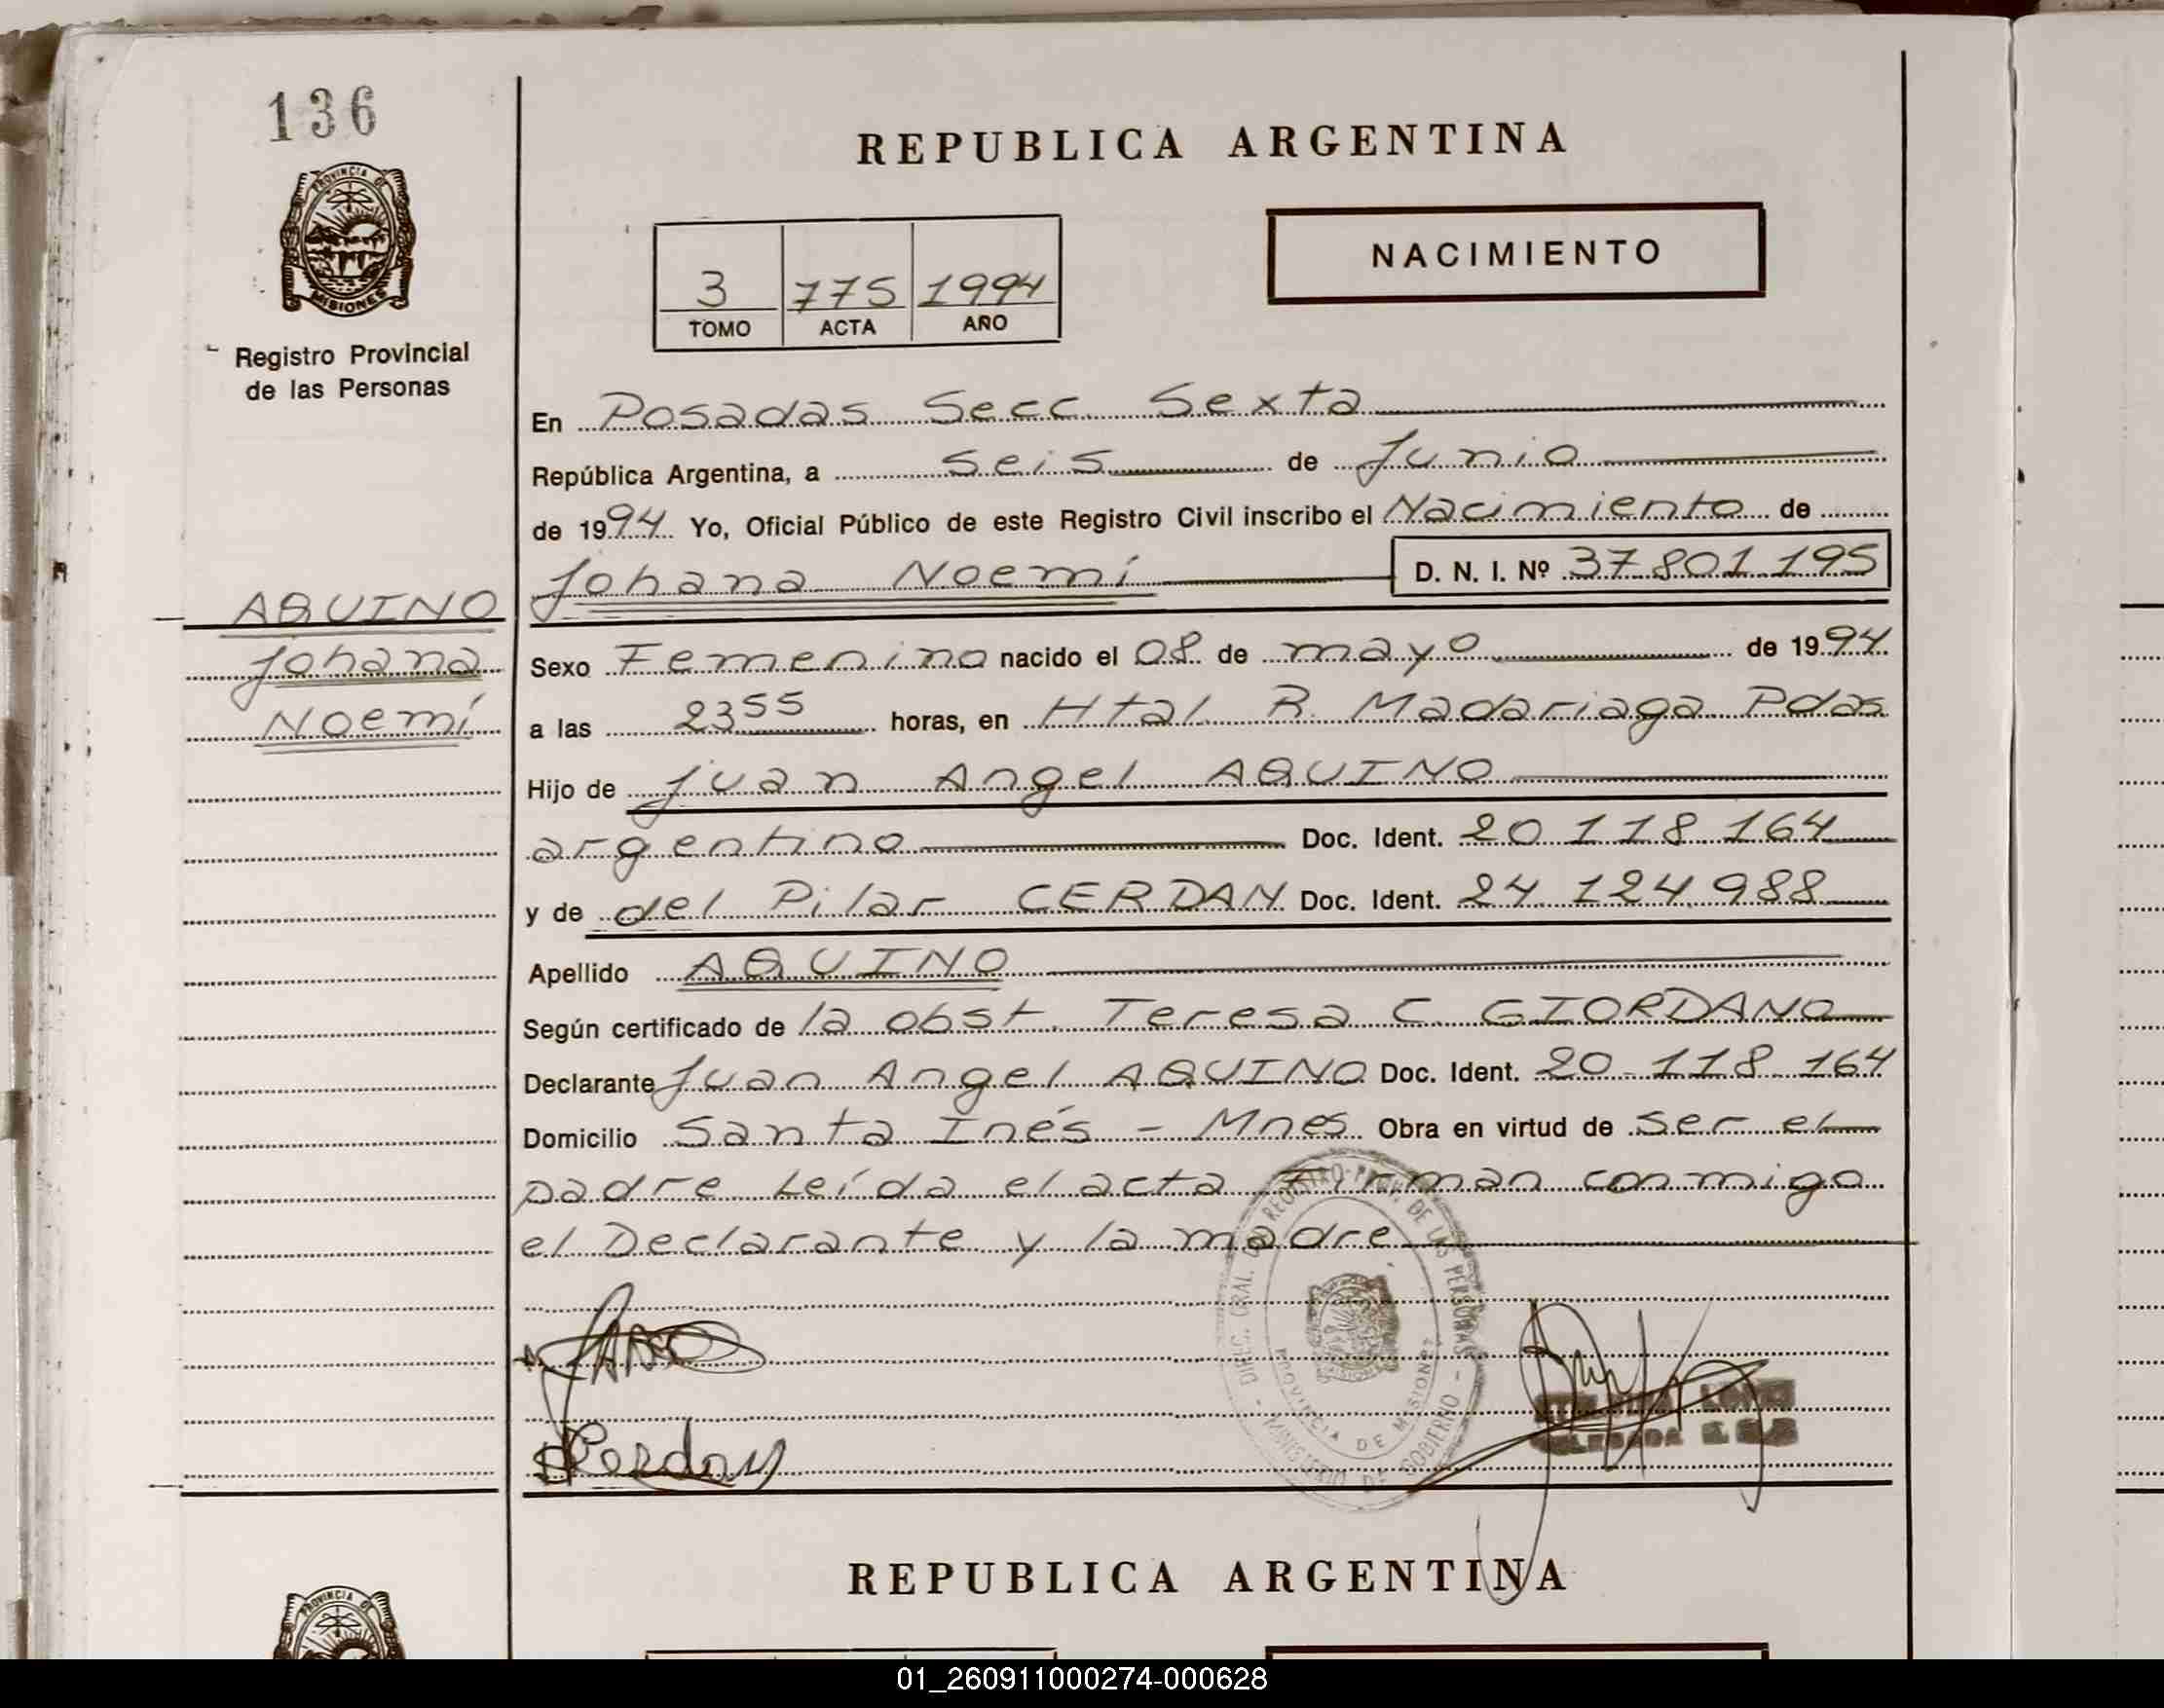 136
PROVINCIA DE
MISIONES
Registro Provincial
de las Personas
REPUBLICA ARGENTINA
NACIMIENTO
3 775 1994
TOMO ACTA AÑO
En Posadas Secc. Sexta
República Argentina, a seis de Junio
de 1994 Yo, Oficial Público de este Registro Civil inscribo el Nacimiento de
Johana Noemí D. N. I. Nº 37.801.195
AQUINO
Johana
Noemí
Sexo Femenino nacido el 08 de mayo de 1994
a las 2355 horas, en Htal. R. Madariaga Pdas
Hijo de Juan Angel AQUINO
argentino Doc. Ident. 20.118.164
y de del Pilar CERDAN Doc. Ident. 24.124.988
Apellido AQUINO
Según certificado de la obst. Teresa C. GIORDANO
Declarante Juan Angel AQUINO Doc. Ident. 20-118.164
Domicilio Santa Inés - Mnes Obra en virtud de ser el
padre Leída el acta Firman conmigo
el Declarante y la madre
DIREC. GRAL. DEL REGISTRO PROV. DE LAS PERSONAS
PROVINCIA DE MISIONES
- MINISTERIO DE GOBIERNO -
Cerdan
REPUBLICA ARGENTINA
PROVINCIA DE
01_260911000274-000628